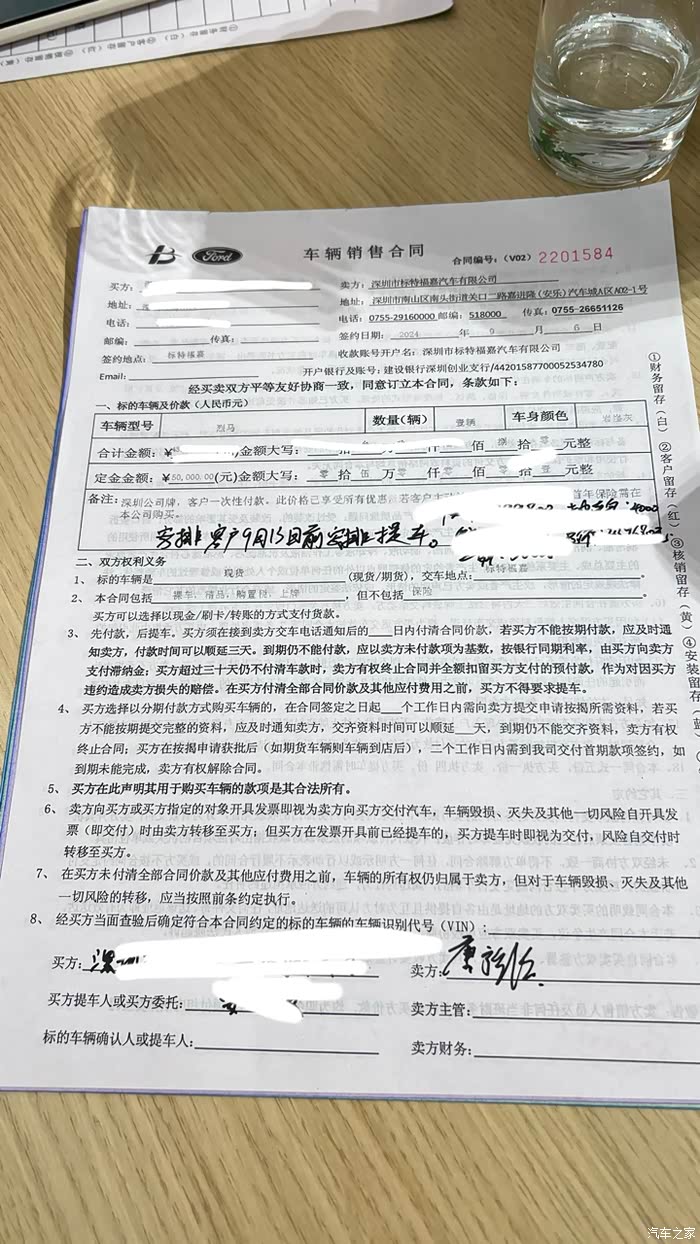 Ford
车辆销售合同
合同编号:(V02) 2201584
买方:
卖方: 深圳市标特福嘉汽车有限公司
地址:
地址: 深圳市南山区南头街道关口二路嘉进隆(安乐)汽车城A区A02-1号
电话:
电话: 0755-29160000 邮编: 518000 传真: 0755-26651126
邮编: 传真:
签约日期: 2024 年 9 月 6 日
签约地点: 标特福嘉
收款账号开户名: 深圳市标特福嘉汽车有限公司
Email:
开户银行及账号: 建设银行深圳创业支行/44201587700052534780
经买卖双方平等友好协商一致,同意订立本合同,条款如下:
一、标的车辆及价款(人民币元)
车辆型号 烈马 数量(辆) 壹辆 车身颜色
合计金额: ¥ 金额大写: 拾 仟 佰 捌 拾 零 元整
定金金额: ¥50,000.00(元)金额大写: 零 拾 伍 万 零 仟 零 佰 零 拾 壹 元整
备注: 深圳公司牌,客户一次性付款。此价格已享受所有优惠。若客户主动 首年保险需在
本公司购买。
安排客户9月15日前安排提车。
二、双方权利义务
1、标的车辆是 现货 (现货/期货),交车地点: 标特福嘉
2、本合同包括 裸车、精品、购置税、上牌 ,但不包括 保险 。
买方可以选择以现金/刷卡/转账的方式支付货款。
3、先付款,后提车。买方须在接到卖方交车电话通知后的___日内付清合同价款,若买方不能按期付款,应及时通
知卖方,付款时间可以顺延三天。到期仍不能付款,应以卖方未付款项为基数,按银行同期利率,由买方向卖方
支付滞纳金;买方超过三十天仍不付清车款时,卖方有权终止合同并全额扣留买方支付的预付款,作为对因买方
违约造成卖方损失的赔偿。在买方付清全部合同价款及其他应付费用之前,买方不得要求提车。
4、买方选择以分期付款方式购买车辆的,在合同签定之日起___个工作日内需向卖方提交申请按揭所需资料,若买
方不能按期提交完整的资料,应及时通知卖方,交齐资料时间可以顺延___天,到期仍不能交齐资料,卖方有权
终止合同;买方在按揭申请获批后(如期货车辆则车辆到店后),二个工作日内需到我司交付首期款项签约,如
到期未能完成,卖方有权解除合同。
5、买方在此声明其用于购买车辆的款项是其合法所有。
6、卖方向买方或买方指定的对象开具发票即视为卖方向买方交付汽车,车辆毁损、灭失及其他一切风险自开具发
票(即交付)时由卖方转移至买方;但买方在发票开具前已经提车的,买方提车时即视为交付,风险自交付时
转移至买方。
7、在买方未付清全部合同价款及其他应付费用之前,车辆的所有权仍归属于卖方,但对于车辆毁损、灭失及其他
一切风险的转移,应当按照前条约定执行。
8、经买方当面查验后确定符合本合同约定的标的车辆的车辆识别代号(VIN):
买方:
卖方:
买方提车人或买方委托:
卖方主管:
标的车辆确认人或提车人:
卖方财务:
①财务留存(白) ②客户留存(红) ③核销留存(黄) ④安装留存(蓝)
汽车之家